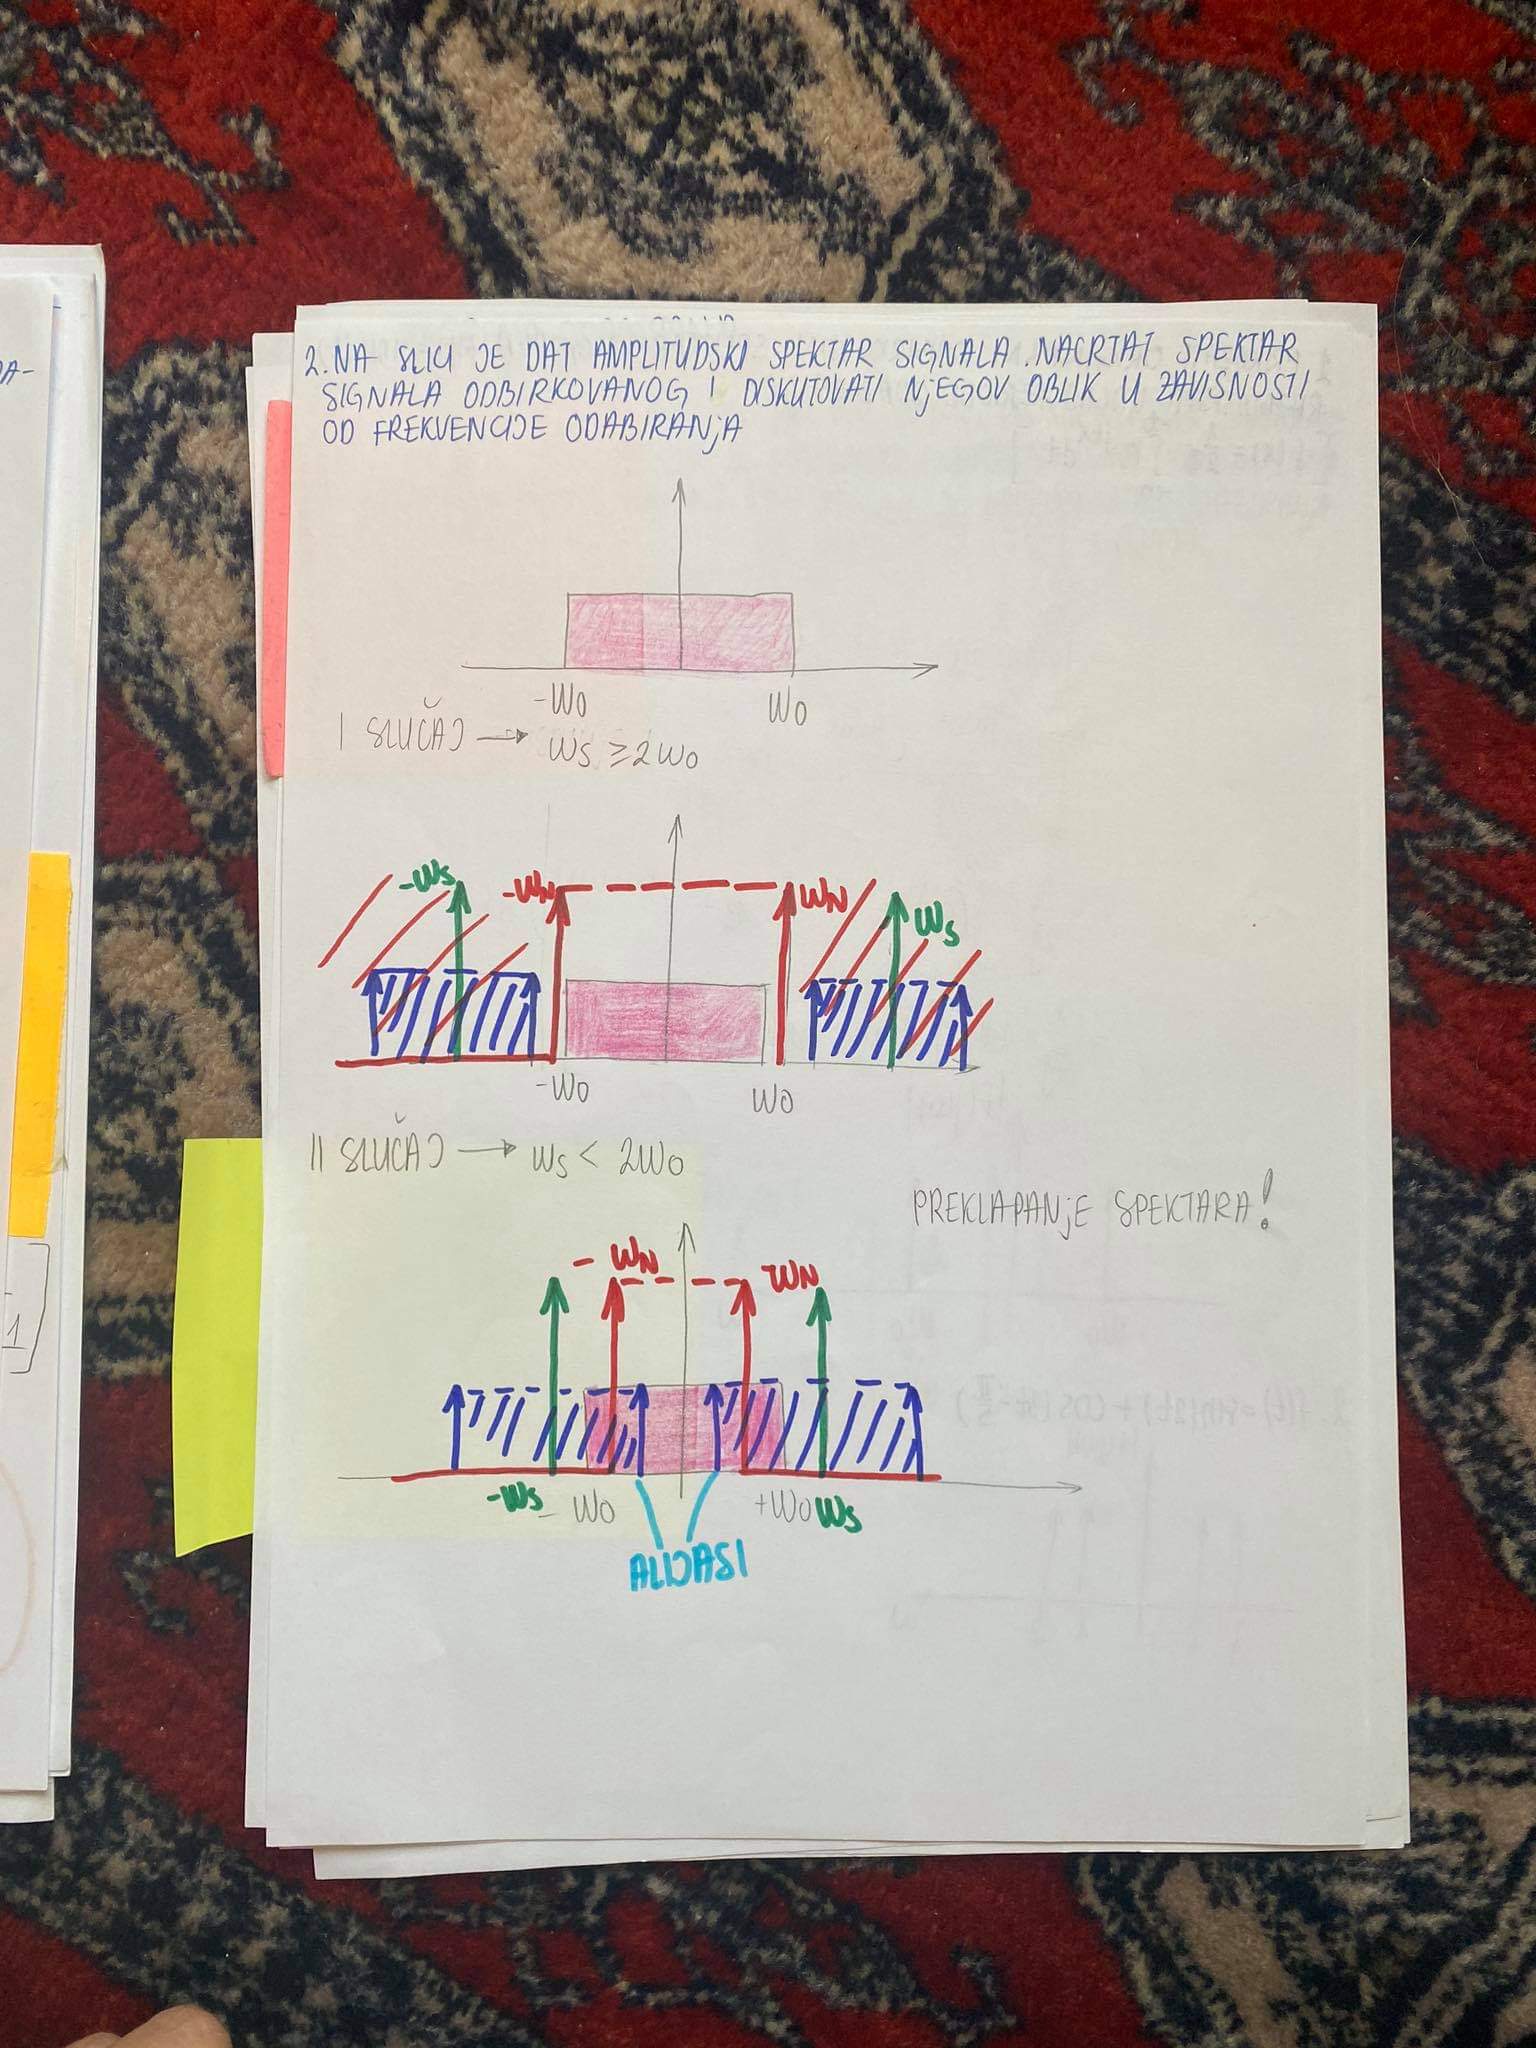 2. NA SLICI JE DAT AMPLITUDSKI SPEKTAR SIGNALA. NACRTAT SPEKTAR
SIGNALA ODBIRKOVANOG I DISKUTOVATI NjEGOV OBLIK U ZAVISNOSTI
OD FREKVENCIJE ODABIRANjA
-W0 W0
I SLUČAJ → Ws ≥ 2W0
-Ws -WN WN Ws
-W0 W0
II SLUČAJ → Ws < 2W0
PREKLAPANjE SPEKTARA!
-WN WN
-Ws -W0 +W0 Ws
ALIJASI
A-
1]